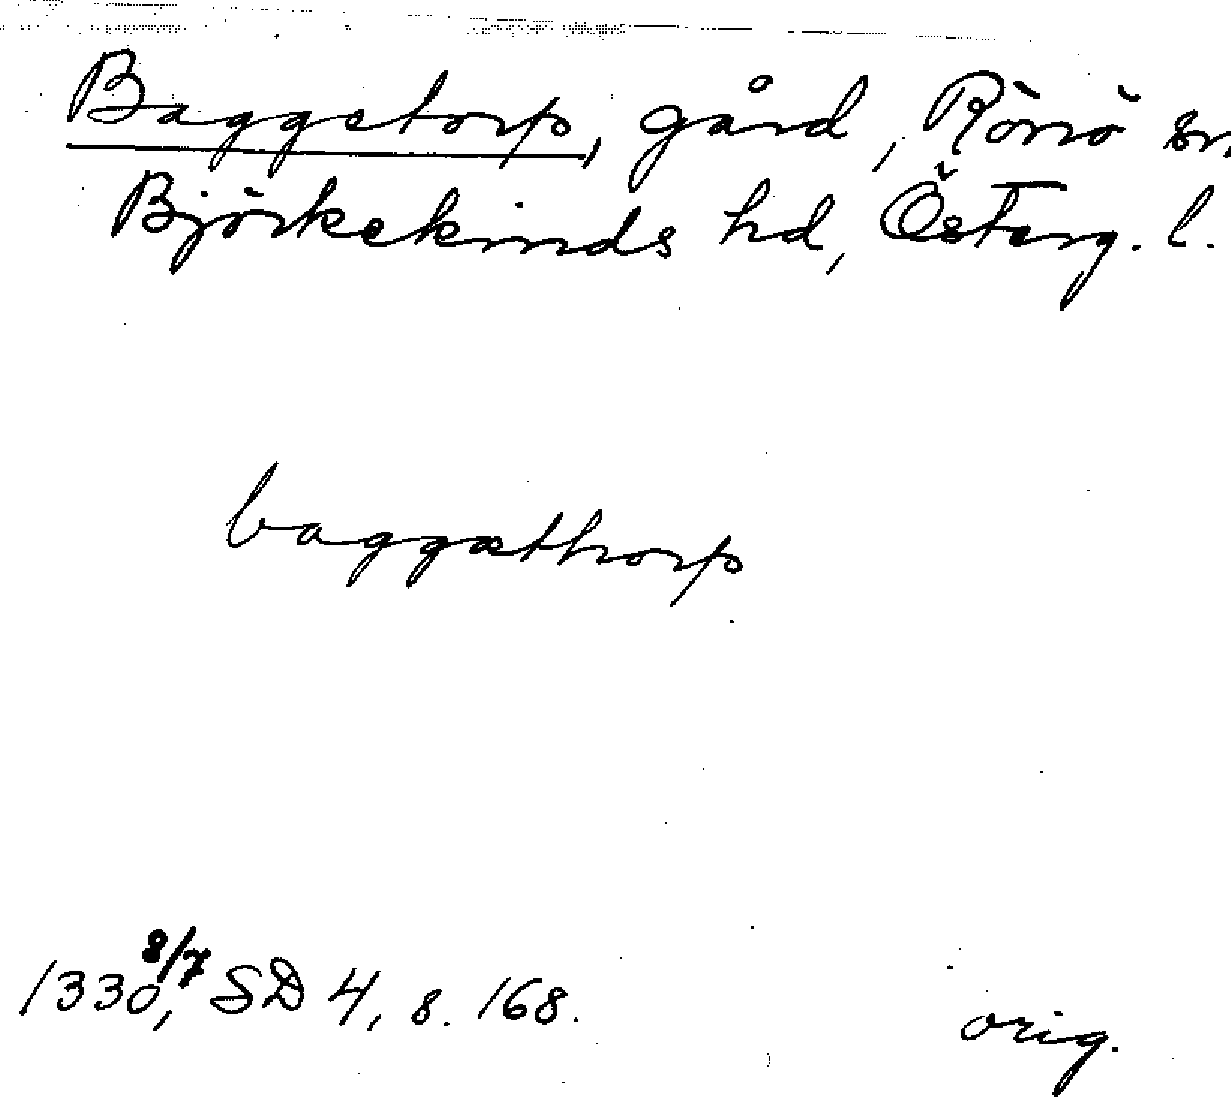 Baggetorp, gård, Rönö sn
Björkekinds hd, Österg. l.
baggæthorp
1330 8/7, SD 4, s. 168.
orig.